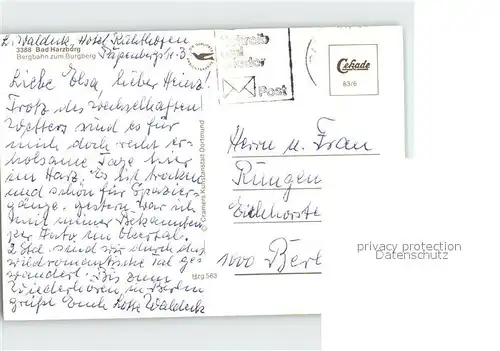 L. Waldeck, Hotel
Papenbergstr. 3
3388 Bad Harzburg
Bergbahn zum Burgberg
Liebe Elsa, lieber Heinz!
Trotz des wechselhaften
Wetters sind es für
mich doch recht er-
holsame Tage hier
im Harz. Es ist trocken
und schön für Spazier-
gänge. gestern war ich
mit meiner Bekannten
per Auto im Okertal.
2 Std. sind wir durch das
wildromantische Tal ge
wandert. Bis zum
Wiederhören, in Berlin
grüßt Euch Lotte Waldeck
© Cramers Kunstanstalt Dortmund
Bzg 563
Schreib
mal
wieder
Post
Cekade
83/6
Herrn u. Frau
Rüngen
Eichhorste
1000 Berl
privacy protection
Datenschutz